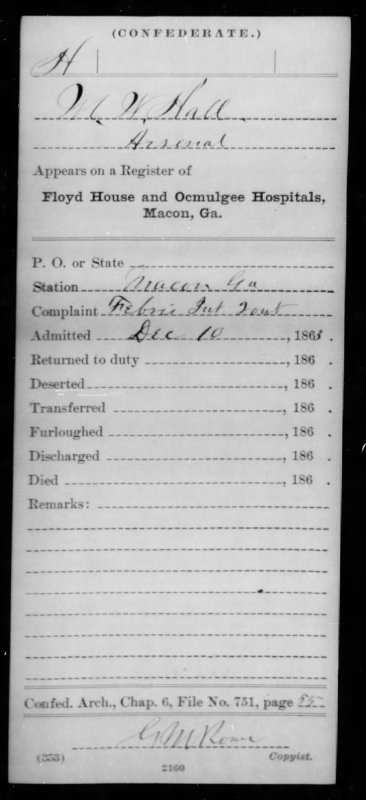 (CONFEDERATE.)
H
M. W. Hall.
Arsenal
Appears on a Register of
Floyd House and Ocmulgee Hospitals,
Macon, Ga.
P. O. or State
Station Macon Ga
Complaint Febris Int
Admitted Dec 10, 1863.
Returned to duty, 186 .
Deserted, 186 .
Transferred, 186 .
Furloughed, 186 .
Discharged, 186 .
Died, 186 .
Remarks:
Confed. Arch., Chap. 6, File No. 751, page 55
G M
(353) Copyist.
2160